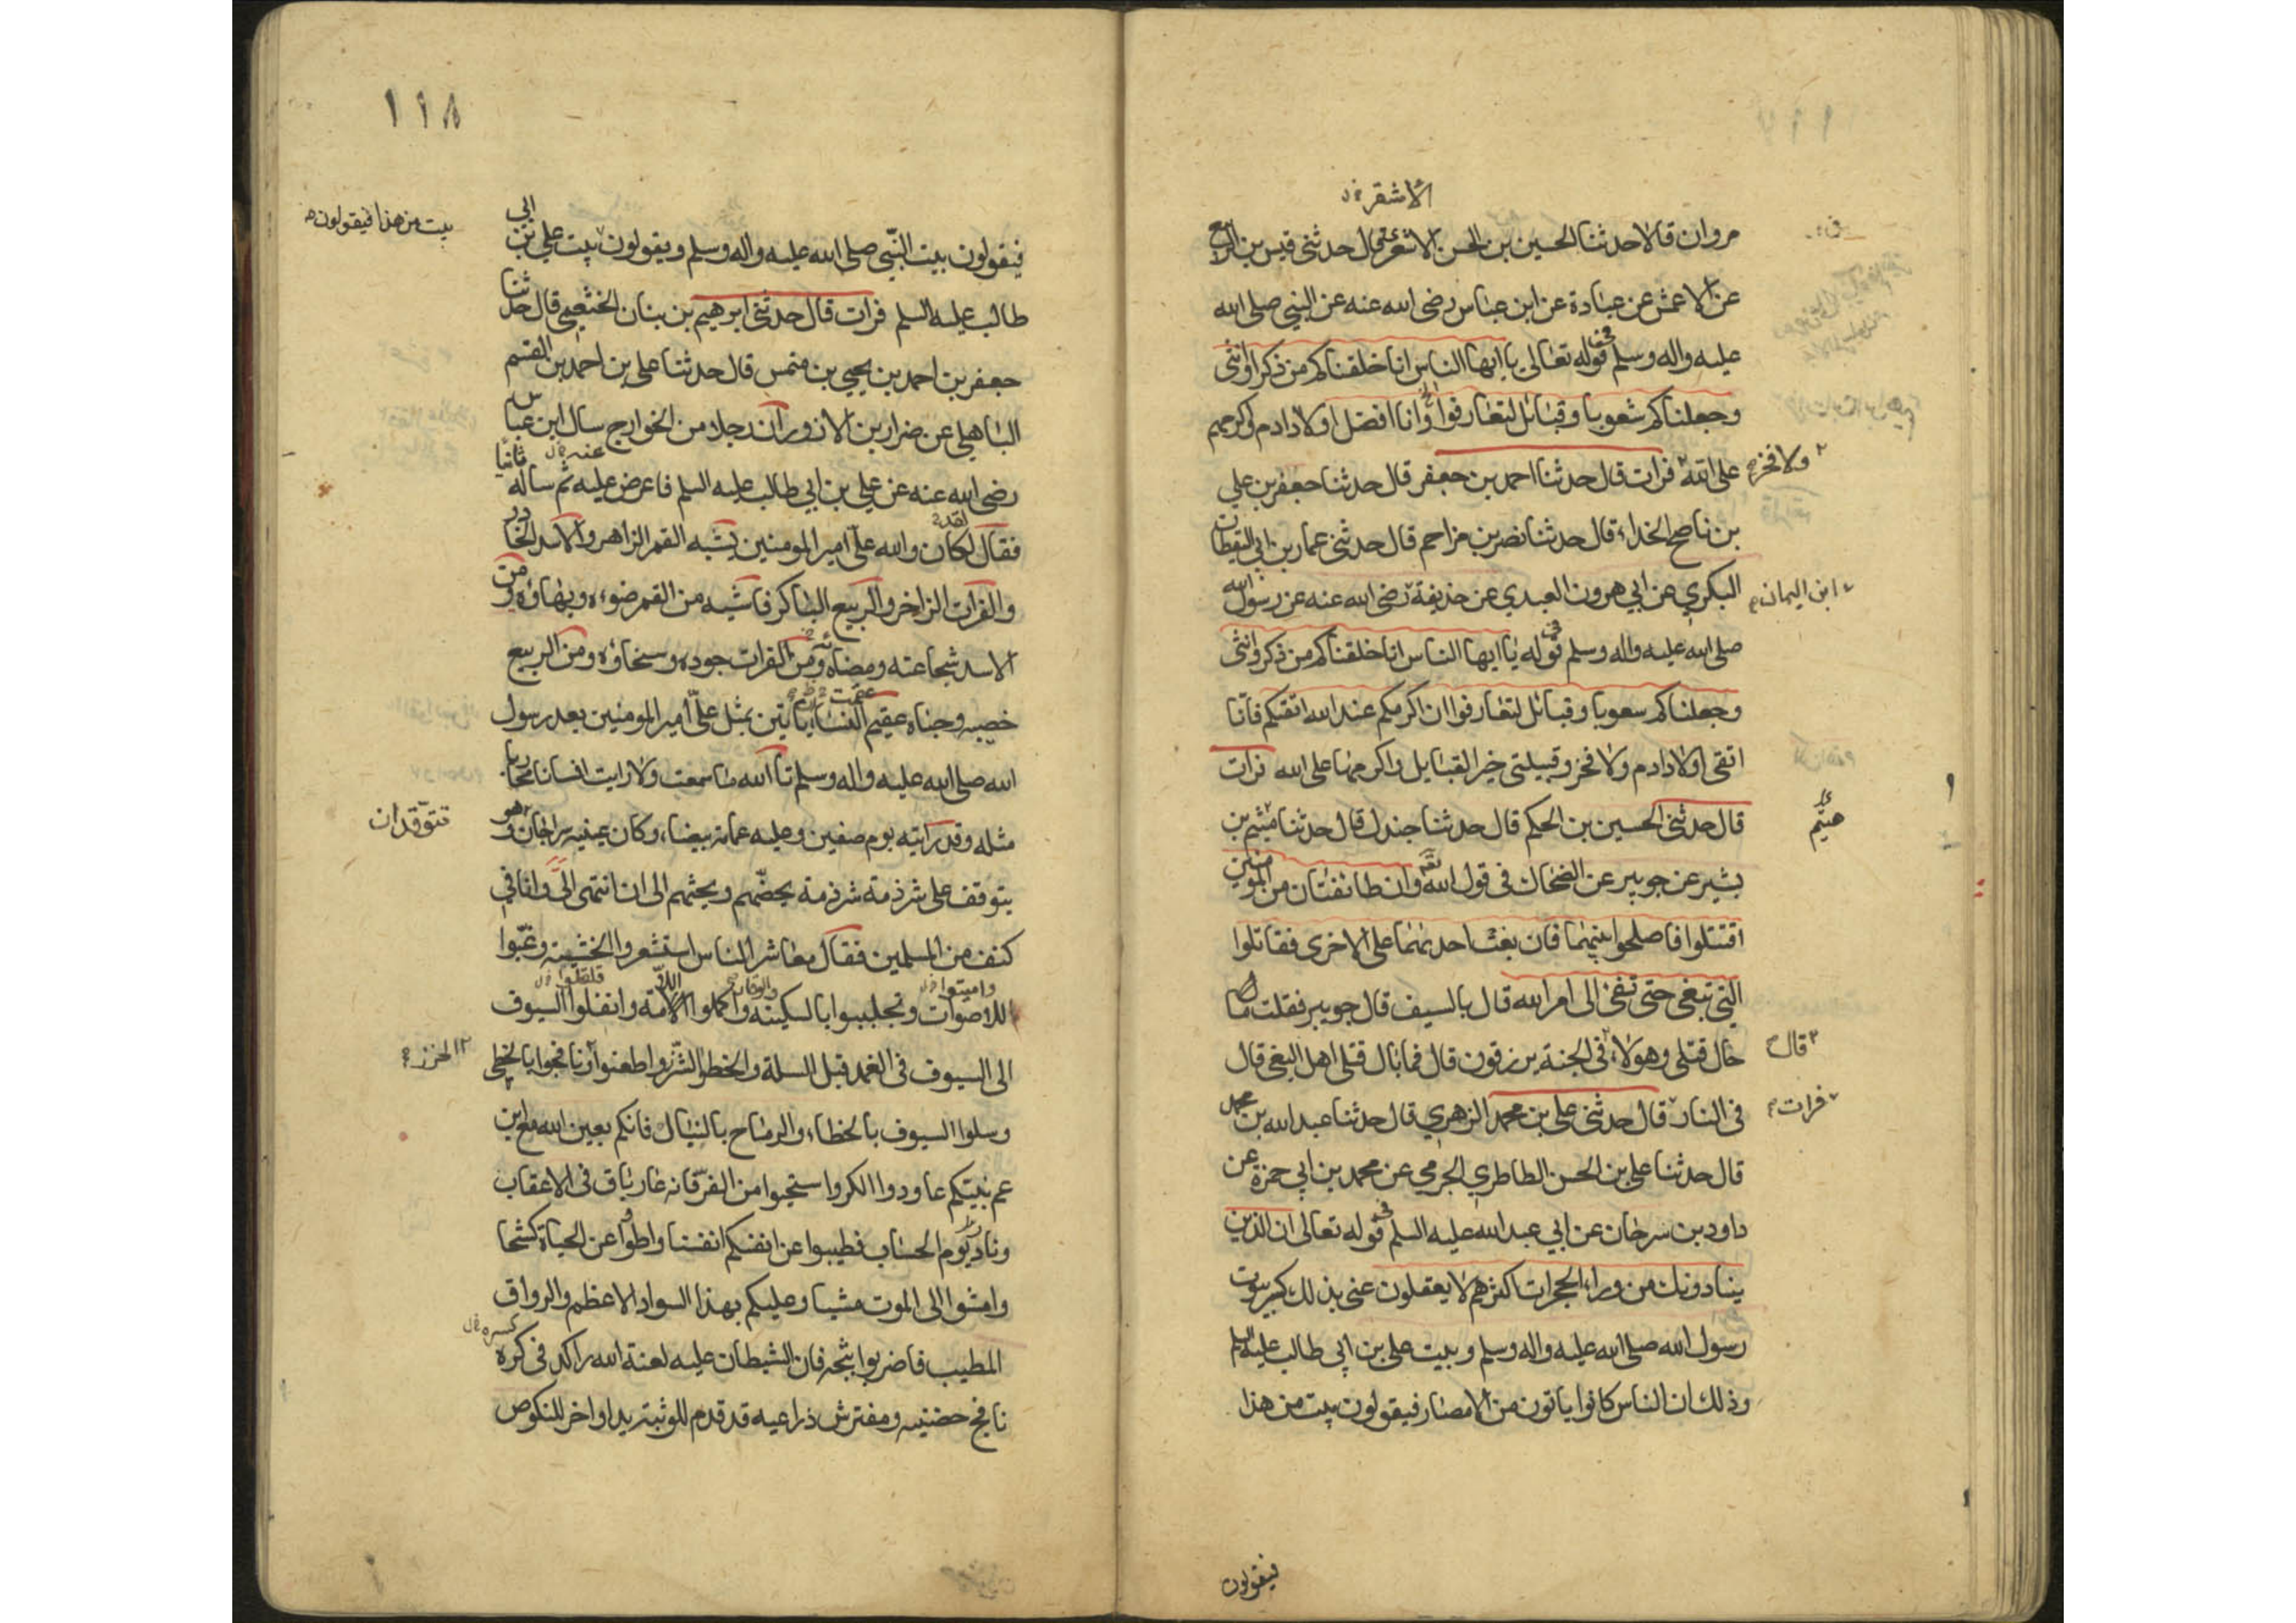 الاشقر
مروان قالا حدثنا الحسين بن الحسن الاشعرى قال حدثنى قيس بن الربيع
عن الاعمش عن عبادة عن ابن عباس رضى الله عنه عن النبي صلى الله
عليه واله وسلم فى قوله تعالى يا ايها الناس انا خلقناكم من ذكر او انثى
وجعلناكم شعوبا وقبائل لتعارفوا وانا افضل اولاد ادم واكرمهم
على الله فرات قال حدثنا احمد بن جعفر قال حدثنا جعفر بن علي
ولا فخر
بن ناصح الحذاء قال حدثنا نصر بن مزاحم قال حدثنى عمار بن ابي اليقظان
البكري عن ابي هرون العبدي عن حذيفة رضى الله عنه عن رسول الله
ابن اليمان
صلى الله عليه واله وسلم فى قوله يا ايها الناس انا خلقناكم من ذكر وانثى
وجعلناكم شعوبا وقبائل لتعارفوا ان اكرمكم عند الله اتقيكم فانا
اتقى اولاد ادم ولا فخر وقبيلتى خير القبايل واكرمها على الله فرات
قال حدثنى الحسين بن الحكم قال حدثنا جندل قال حدثنا ميثم بن
هيثم
بشير عن جويبر عن الضحاك فى قول الله وان طائفتان من المومنين
اقتتلوا فاصلحوا بينهما فان بغت احديهما على الاخرى فقاتلوا
التي تبغى حتى تفئ الى امر الله قال بالسيف قال جويبر فقلت ما
حال قتلى وهولاء فى الجنة يرزقون قال فما بال قتلى اهل البغى قال
قال
فى النار قال حدثنى على بن محمد الزهري قال حدثنا عبد الله بن محمد
فرات
قال حدثنا على بن الحسن الطاطري الجرمي عن محمد بن ابي حمزة عن
داود بن سرحان عن ابي عبد الله عليه السلم فى قوله تعالى ان الذين
ينادونك من وراء الحجرات اكثرهم لا يعقلون عنى بذلك كبر بيوت
رسول الله صلى الله عليه واله وسلم وبيت على بن ابي طالب عليه السلم
وذلك ان الناس كانوا ياتون من الامصار فيقولون بيت من هذا
فيقولون
١١٨
فيقولون بيت النبي صلى الله عليه واله وسلم ويقولون بيت علي بن ابي
بيت من هذا فيقولون
طالب عليه السلم فرات قال حدثنى ابرهيم بن بنان الخثعمي قال حدثنا
جعفر بن احمد بن يحيي بن منمس قال حدثنا على بن احمد بن القسم
الباهلي عن ضرار بن الازور ان رجلا من الخوارج سال ابن عباس
رضى الله عنه عن علي بن ابي طالب عليه السلم فاعرض عليه ثم ساله ثانيا
عنه
فقال لكان والله على امير المومنين يشبه القمر الزاهر والاسد الخادر
لقد
والفرات الزاخر والربيع الباكر فاشبه من القمر ضوءه وبهاؤه ومن
الاسد شجاعته ومضاه ومن الفرات جوده وسخاؤه ومن الربيع
خصبه وحباه عقيم النساء ياتين بمثل على امير المومنين بعد رسول
عقمت
الله صلى الله عليه واله وسلم تا الله ما سمعت ولا رايت انسانا محاربا
مثله وقد رايته يوم صفين وعليه عمامة بيضاء وكان عينيه سراجان وهو
تتوقدان
يتوقف على شرذمة شرذمة يحضهم ويحثهم الى ان انتهى الىّ وانا فى
كنف من المسلمين فقال معاشر الناس استشعروا الخشية وغضوا
واميتوا
الاصوات وتجلببوا بالسكينة واكملوا اللامة واقفلوا السيوف
الى السيوف فى الغمد قبل السلة والحظوا الشزر واطعنوا
الخزر
وسلوا السيوف بالخطاء والرماح بالنبال فانكم بعين الله مع ابن
عم نبيكم عاودوا الكر واستحيوا من الفر فانه عار باق فى الاعقاب
ونار يوم الحساب فطيبوا عن انفسكم انفسا واطووا عن الحياة كشحا
وامشوا الى الموت مشيا وعليكم بهذا السواد الاعظم والرواق
المطيب فاضربوا ثبجه فان الشيطان عليه لعنة الله راكد فى كره
كسره
نافج حضنيه ومفترش ذراعيه قد قدم للوثبة يدا واخر للنكوص